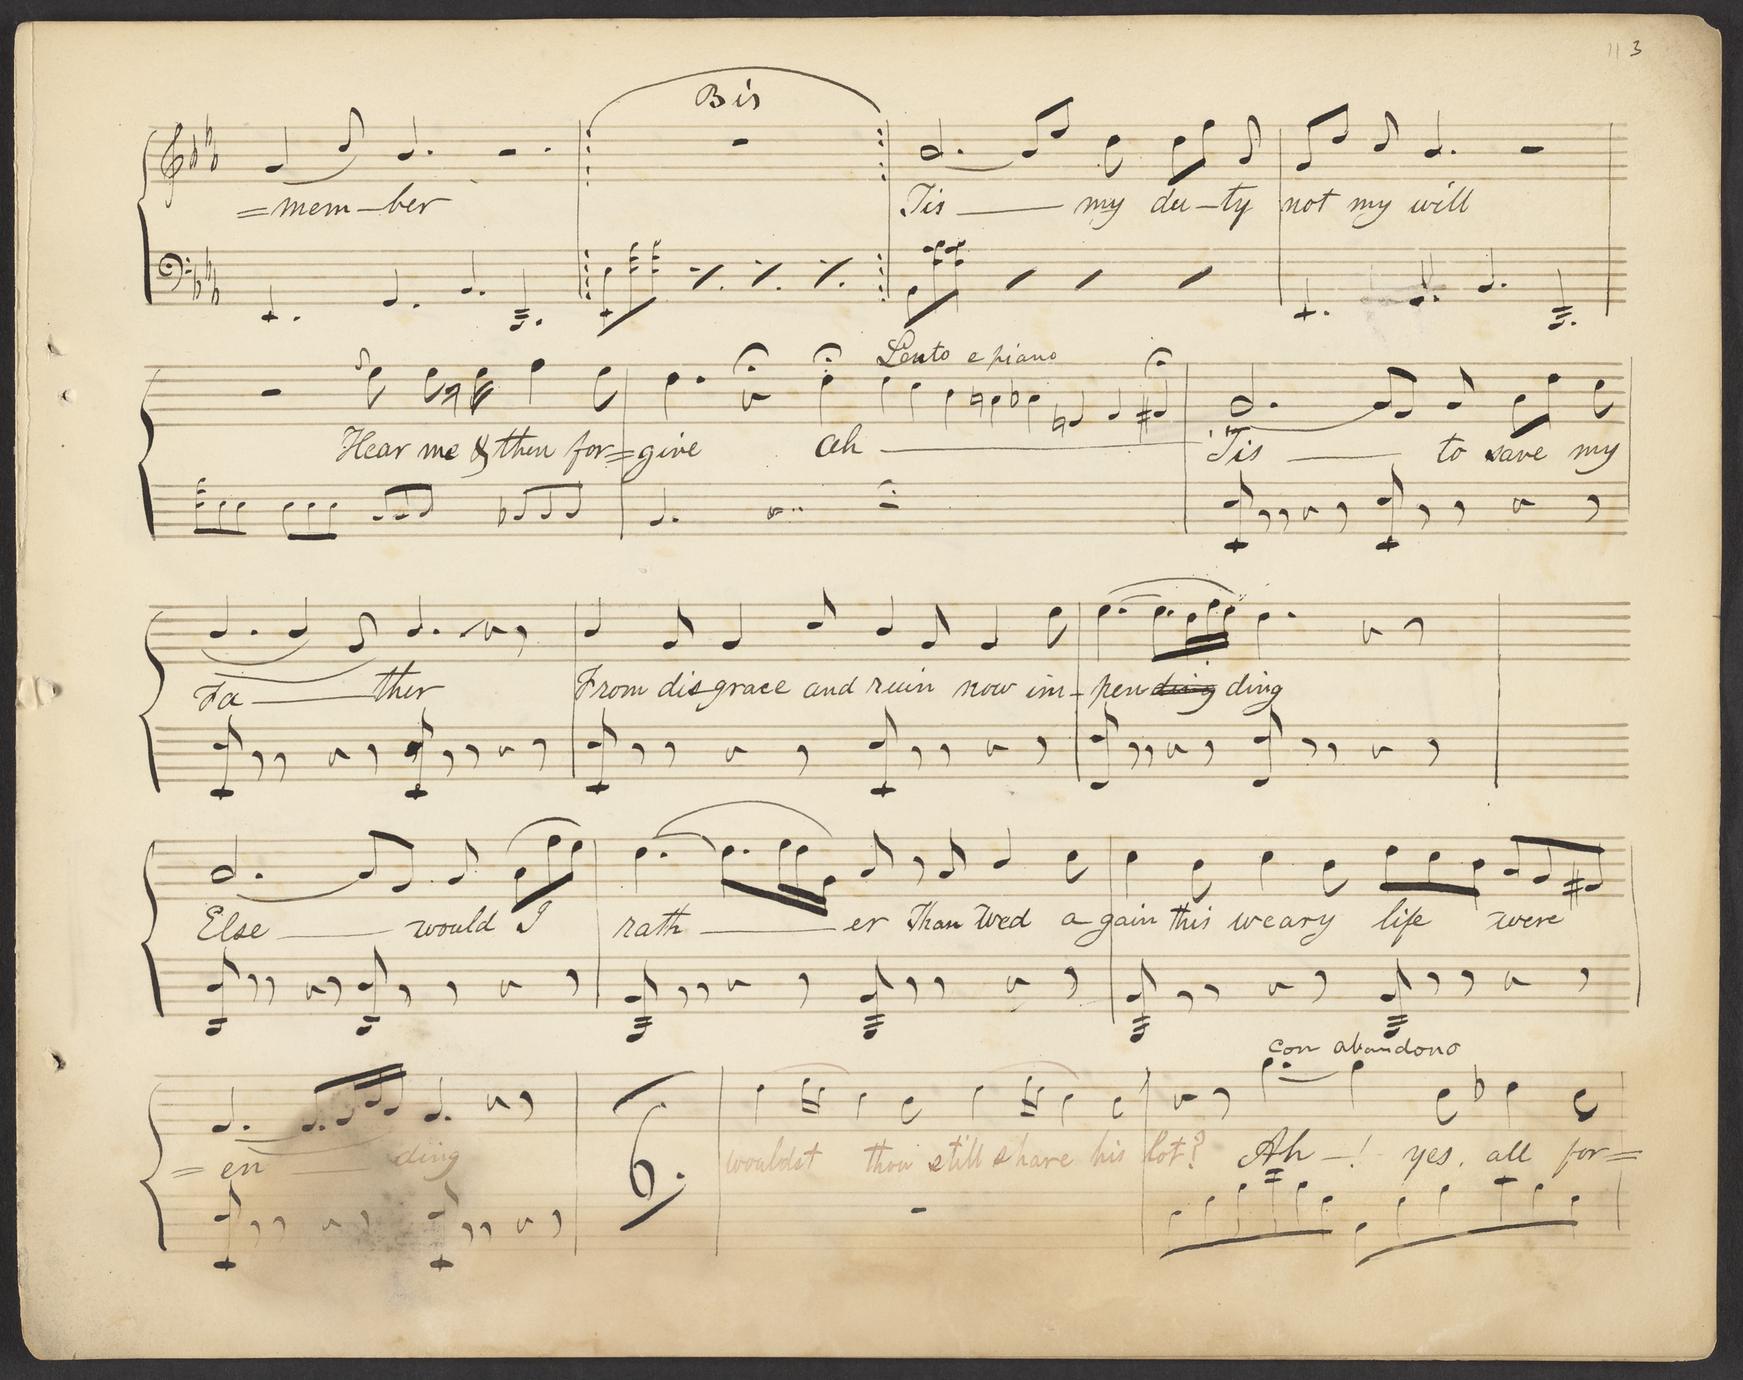 113
Bis
=mem-ber Tis my du-ty not my will
Lento e piano
Hear me & then for=give ah 'Tis to save my
Fa ther From disgrace and ruin now im-pen ding ding
Else would I rath er than wed a gain this weary life were
con abandono
=en ding 6. wouldst thou still share his lot? Ah-! yes, all for=